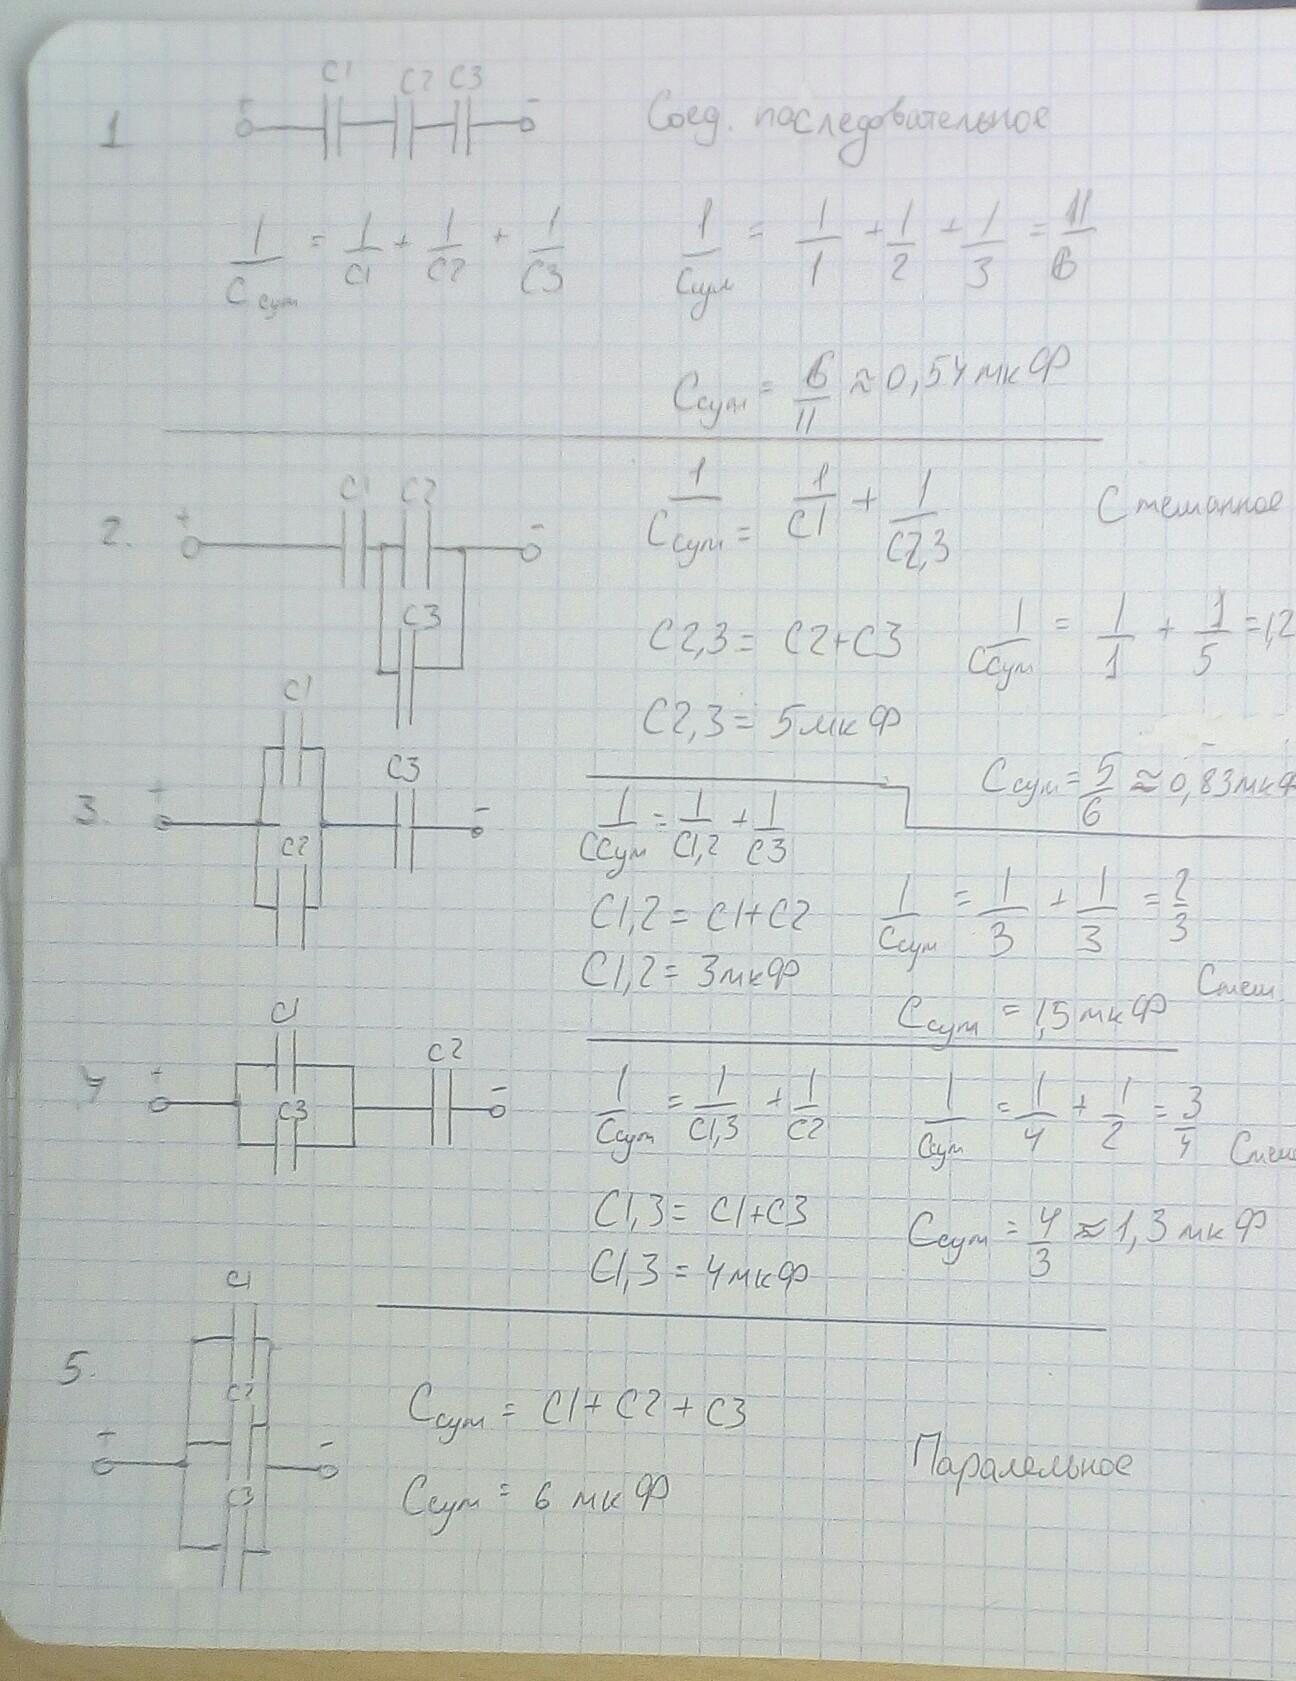 1 C1 C2 C3 Соед. последовательное
+ -
1/Cсум = 1/C1 + 1/C2 + 1/C3 1/Cсум = 1/1 + 1/2 + 1/3 = 11/6
Cсум = 6/11 ≈ 0,54 мкФ
2. + C1 C2 -
C3
1/Cсум = 1/C1 + 1/C2,3 Смешанное
C2,3 = C2+C3 1/Cсум = 1/1 + 1/5 = 1,2
C2,3 = 5 мкФ
Cсум = 5/6 ≈ 0,83 мкФ
3. + C1 C2 C3 -
1/Cсум = 1/C1,2 + 1/C3
C1,2 = C1+C2 1/Cсум = 1/3 + 1/3 = 2/3
C1,2 = 3 мкФ Смеш.
Cсум = 1,5 мкФ
4 + C1 C3 C2 -
1/Cсум = 1/C1,3 + 1/C2 1/Cсум = 1/4 + 1/2 = 3/4 Смеш
C1,3 = C1+C3 Cсум = 4/3 ≈ 1,3 мкФ
C1,3 = 4 мкФ
5. + C1 C2 C3 -
Cсум = C1 + C2 + C3
Паралельное
Cсум = 6 мкФ